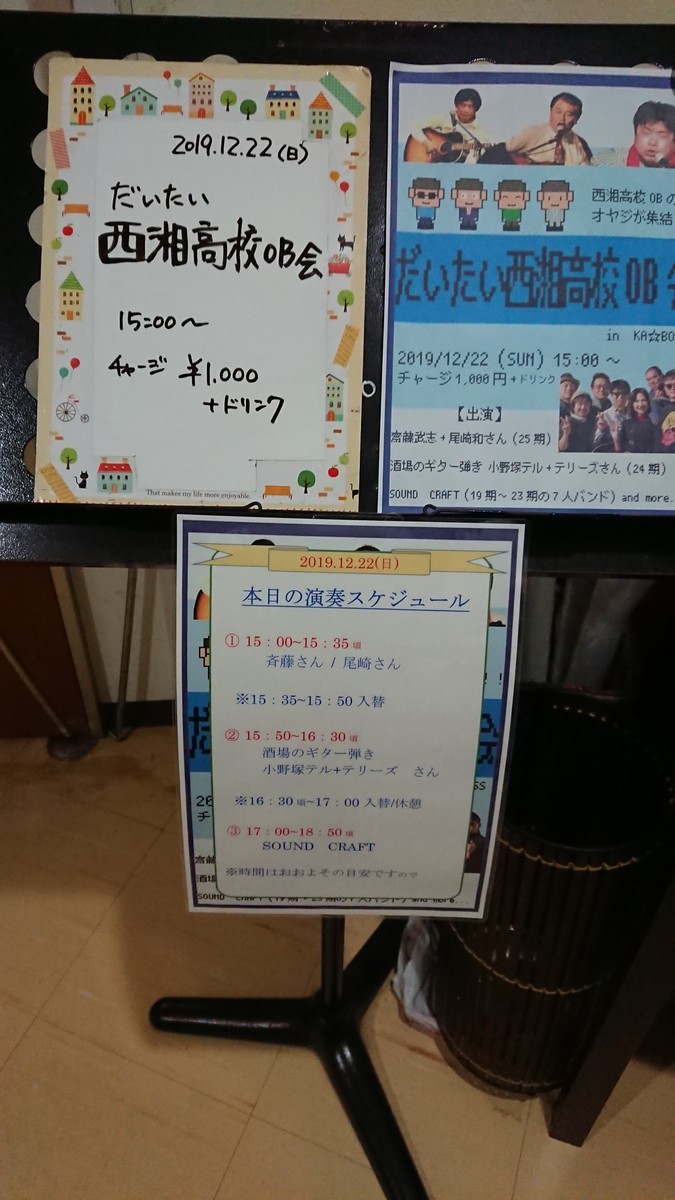 2019.12.22(日)
だいたい
西湘高校OB会
15:00〜
チャージ ¥1.000
+ドリンク
That makes my life more enjoyable.
西湘高校OBの
オヤジが集結
だいたい西湘高校OB会
in KA☆BO
2019/12/22 (SUN) 15:00 ～
チャージ1,000円+ドリンク
【出演】
齋藤武志+尾崎和さん(25期)
酒場のギター弾き 小野塚テル+テリーズさん(24期)
SOUND CRAFT(19期～23期の7人バンド) and more.
2019.12.22(日)
本日の演奏スケジュール
① 15：00~15：35頃
斉藤さん / 尾崎さん
※15：35~15：50 入替
② 15：50~16：30頃
酒場のギター弾き
小野塚テル+テリーズ さん
※16：30頃~17：00 入替/休憩
③ 17：00~18：50頃
SOUND CRAFT
※時間はおおよその目安ですので